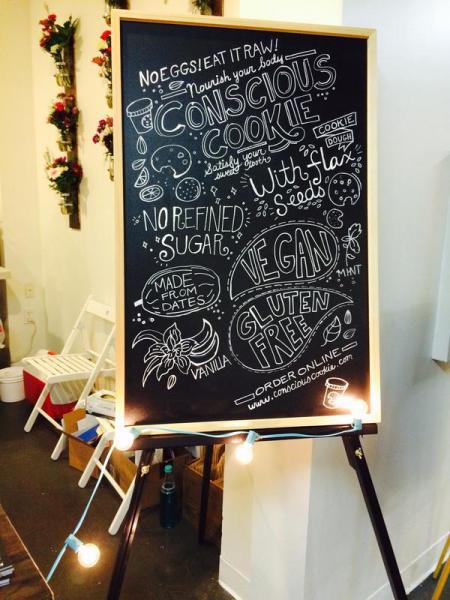 NO EGGS! EAT IT RAW!
Nourish your body
CONSCIOUS
COOKIE
COOKIE
DOUGH
Satisfy your
sweet tooth
With flax
Seeds
NO REFINED
SUGAR
VEGAN
MINT
MADE
FROM
DATES
GLUTEN
FREE
VANILLA
ORDER ONLINE
www.consciouscookie.com